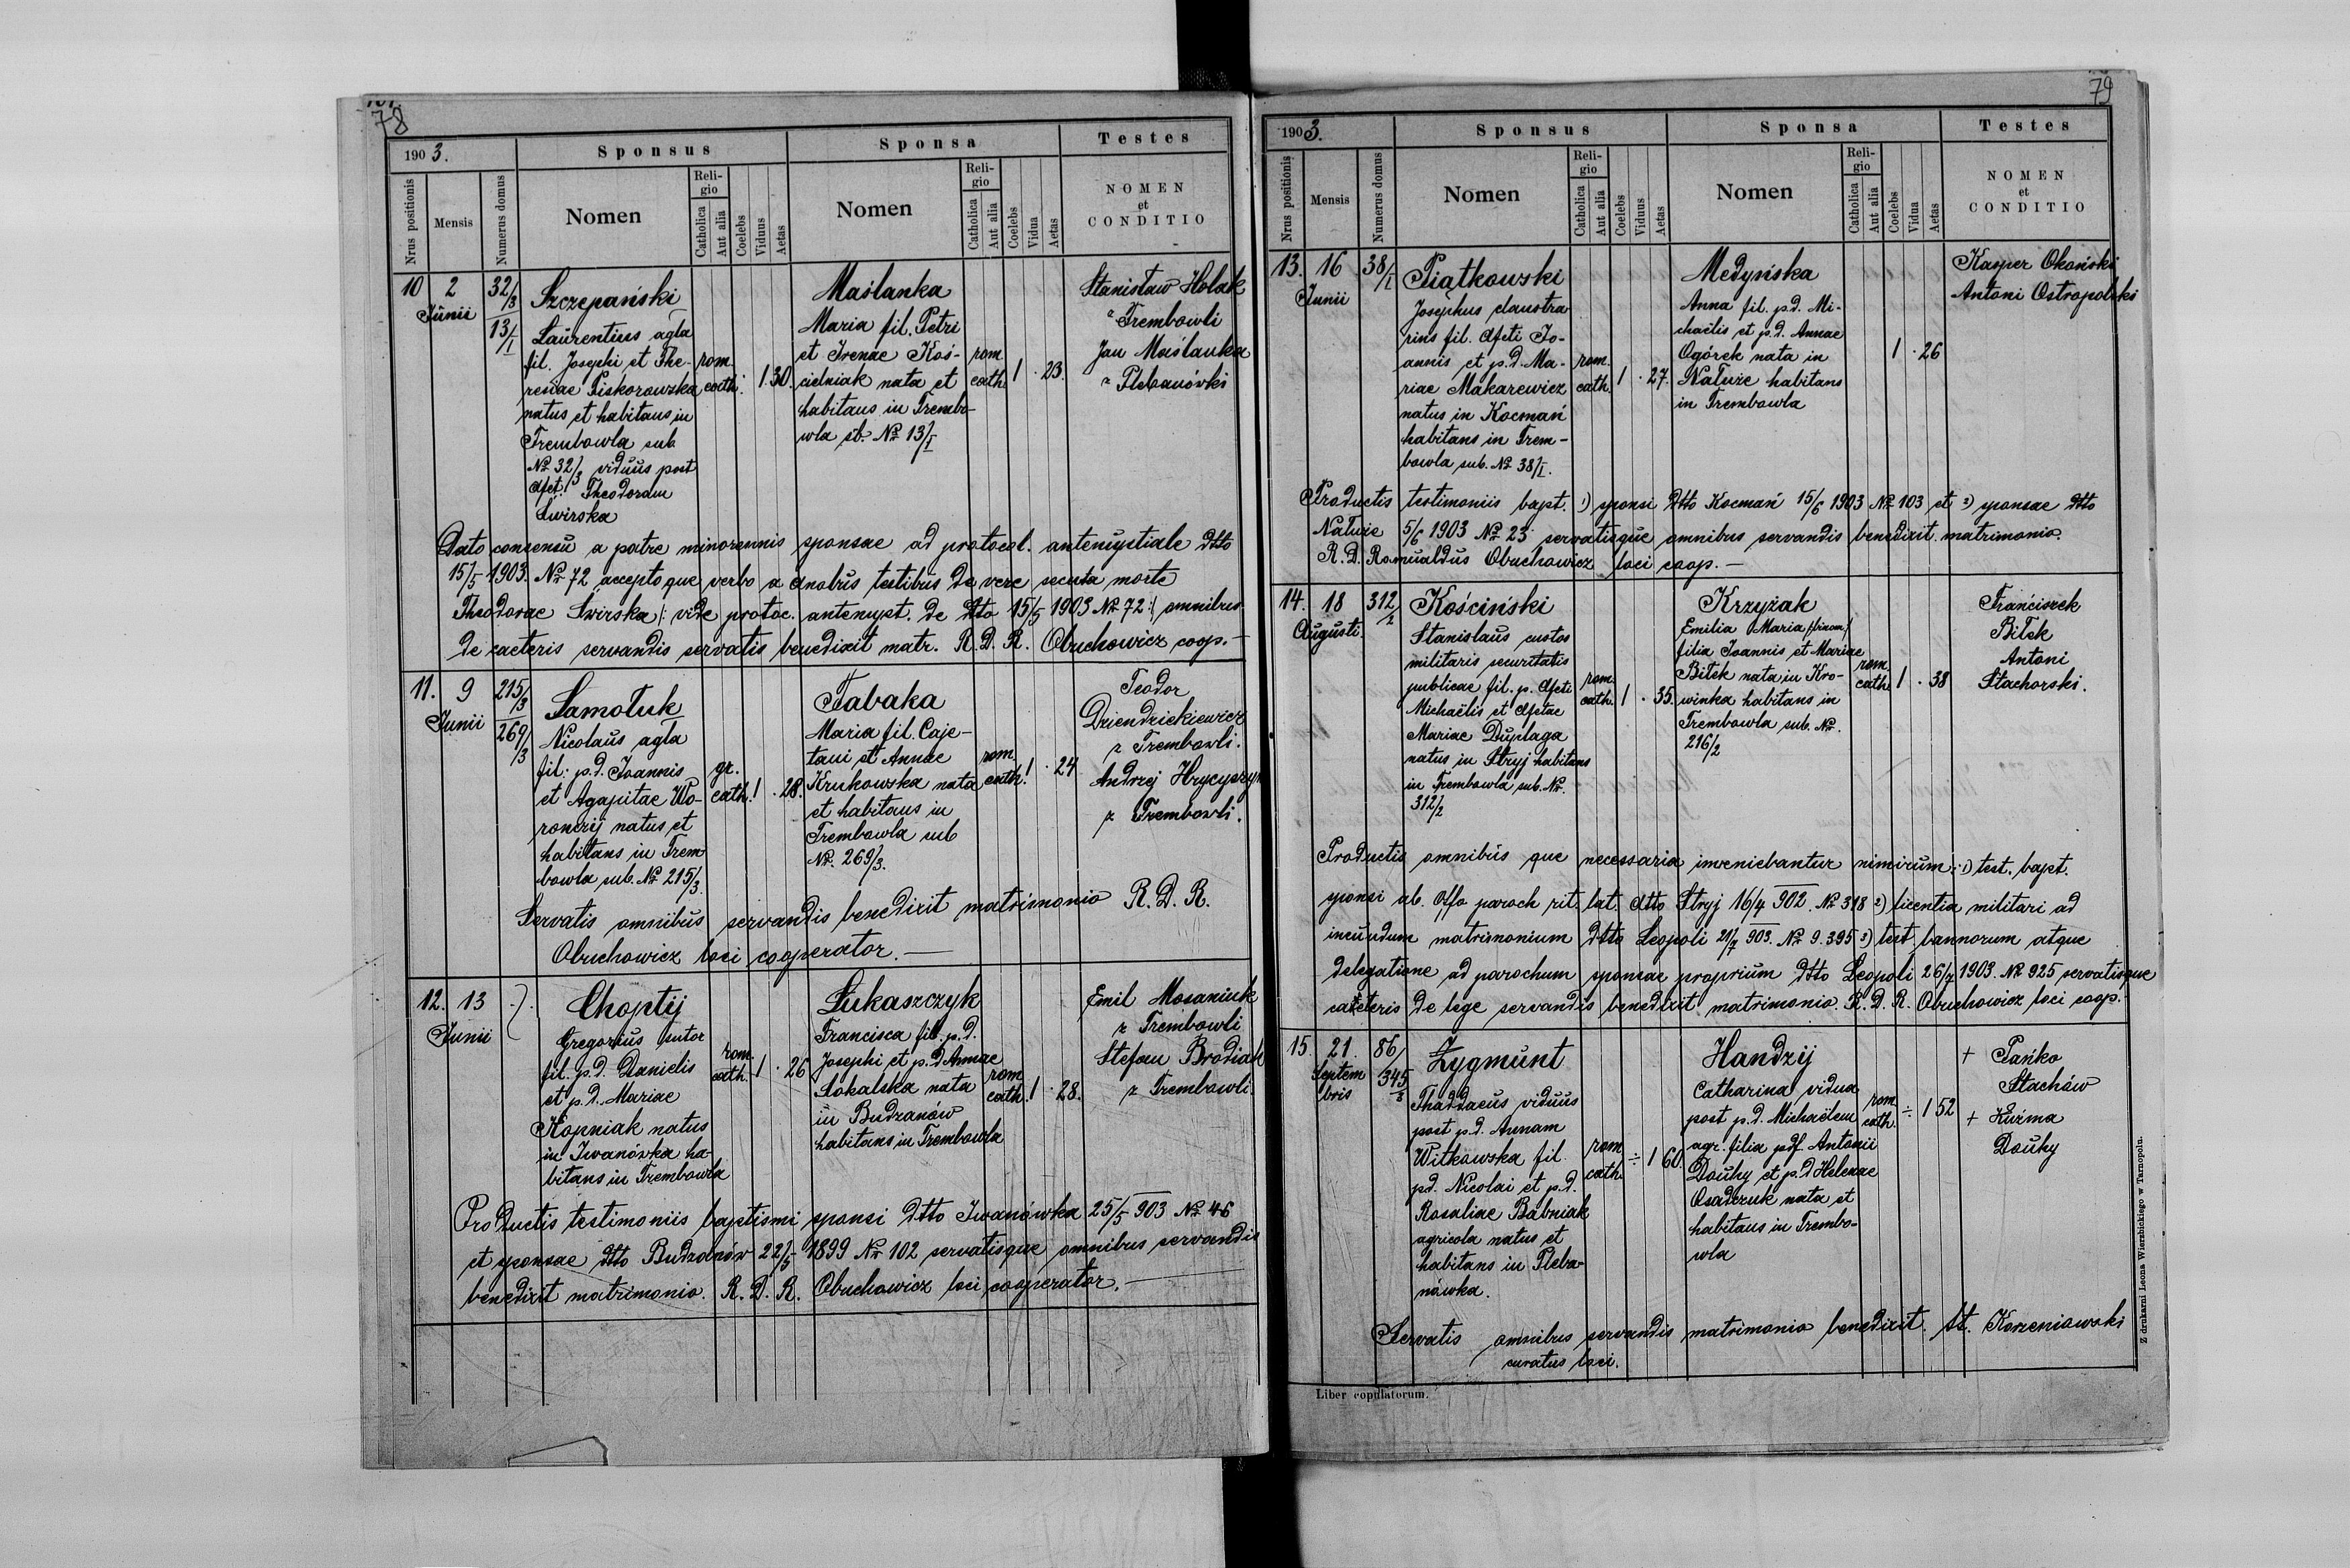 78
190 3.
Sponsus
Sponsa
Testes
Nrus positionis
Mensis
Numerus domus
Nomen
Religio
Catholica
Aut alia
Coelebs
Viduus
Aetas
Nomen
Religio
Catholica
Aut alia
Coelebs
Vidua
Aetas
NOMEN
et
CONDITIO
10
2
Junii
32/3
13/I
Szczepański
Laurentius agla
fil. Josephi et The-
resiae Piskorowska
natus et habitans in
Trembowla sub
No 32/3 viduus post
dfct. Theodoram
Swirska
rom.
cath.
1. 30.
Maślanka
Maria fil. Petri
et Irenae Koś-
cielniak nata et
habitans in Trembo-
wla sb. No 13/I
rom.
cath.
1 . 23.
Stanisław Holak
z Trembowli
Jan Maślanka
z Plebanówki
Dato consensu a patre minorennis sponsae ad protocol. antenuptiale dtto
15/5 1903. No 72 acceptoque verbo a duobus testibus de vere secuta morte
Theodorae Swirska /: vide protoc. antenupt. de dtto 15/5 1903 No 72 :/ omnibus
de caeteris servandis servatis benedixit matr. R. D. R. Obuchowicz coop. -
11.
9
Junii
215/3
269/3
Samoluk
Nicolaus agla
fil: p.d. Joannis
et Agapitae Wo-
roncij natus et
habitans in Trem
bowla sub. No 215/3.
gr.
cath.
1 . 28.
Tabaka
Maria fil. Caje-
tani et Annae
Krukowska nata
et habitans in
Trembowla sub
No. 269/3.
rom.
cath.
1 . 24
Teodor
Dziendzickiewicz
z Trembowli.
Andrzej Hrycyszyn
z Trembowli.
Servatis omnibus servandis benedixit matrimonio R. D. R.
Obuchowicz loci cooperator. —
12.
13
Junii
Choptij
Gregorius sutor
fil. p.d. Danielis
et p.d. Mariae
Kopniak natus
in Iwanówka ha-
bitans in Trembowla
rom.
cath.
1 . 26
Łukaszczyk
Francisca fil. p.d.
Josephi et p.d Annae
Sokalska nata
in Budzanów
habitans in Trembowla
rom.
cath.
1 . 28.
Emil Mosaniuk
z Trembowli
Stefan Brodiak
z Trembowli.
Productis testimoniis baptismi sponsi dtto Iwanówka 25/5 903 No 46
et sponsae dtto Budzanów 22/5 1899 No 102 servatisque omnibus servandis
benedixit matrimonio. R. D. R. Obuchowicz loci cooperator. —
79
190 3.
Sponsus
Sponsa
Testes
Nrus positionis
Mensis
Numerus domus
Nomen
Religio
Catholica
Aut alia
Coelebs
Viduus
Aetas
Nomen
Religio
Catholica
Aut alia
Coelebs
Vidua
Aetas
NOMEN
et
CONDITIO
13.
16
Junii
38/I
Piątkowski
Josephus claustra
rius fil. dfcti Jo-
annis et p.d. Ma-
riae Makarewicz
natus in Kocmań
habitans in Trem-
bowla sub. No 38/I.
rom.
cath.
1 . 27.
Medyńska
Anna fil. p.d. Mi-
chaëlis et p.d. Annae
Ogórek nata in
Nałuże habitans
in Trembowla
1 . 26
Kasper Okoński
Antoni Ostropolski
Productis testimoniis bapt. 1) sponsi dtto Kocmań 15/6 1903 No 103 et 2) sponsae dtto
Nałuże 5/6 1903 No 23 servatisque omnibus servandis benedixit matrimonio
R. D. Romualdus Obuchowicz loci coop. —
14.
18
Augusti.
312/2
Kościński
Stanislaus custos
militaris securitatis
publicae fil. p. dfcti
Michaëlis et dfctae
Mariae Duplaga
natus in Stryj habitans
in Trembowla sub. No.
312/2
rom.
cath.
1 . 35.
Krzyżak
Emilia Maria /binom/
filia Joannis et Mariae
Bitek nata in Kro-
winka habitans in
Trembowla sub. No.
216/2
rom.
cath.
1 . 38
Franciszek
Bitek
Antoni
Stachorski.
Productis omnibus que necessaria inveniebantur nimirum: 1) test. bapt.
sponsi ab. Offo paroch rit. lat. dtto Stryj 16/4 902. No 318 2) licentia militari ad
ineundum matrimonium dtto Leopoli 21/7 903. No 9.395 3) test. bannorum atque
delegatione ad parochum sponsae proprium dtto Leopoli 26/7 1903. No 925 servatisque
caeteris de lege servandis benedixit matrimonio R. D. R. Obuchowicz loci coop.
15.
21.
Septem
bris
86/
345/3
Zygmunt
Thaddaeus viduus
post p.d. Annam
Witkowska fil.
pd. Nicolai et p.d.
Rosaliae Babniak
agricola natus et
habitans in Pleba-
nówka.
rom
cath.
÷ 1 60.
Handzij
Catharina vidua
post p.d. Michaëlem
agr. filia pdf Antonii
Douhy et p.d Helenae
Osadczuk nata et
habitans in Trembo-
wla
rom.
cath.
÷ 1 52
+ Pańko
Stachów
+ Kuźma
Douhy
Servatis omnibus servandis matrimonio benedixit. St. Korzeniowski
curatus loci.
Liber copulatorum.
Z drukarni Leona Wierzbickiego w Tarnopolu.